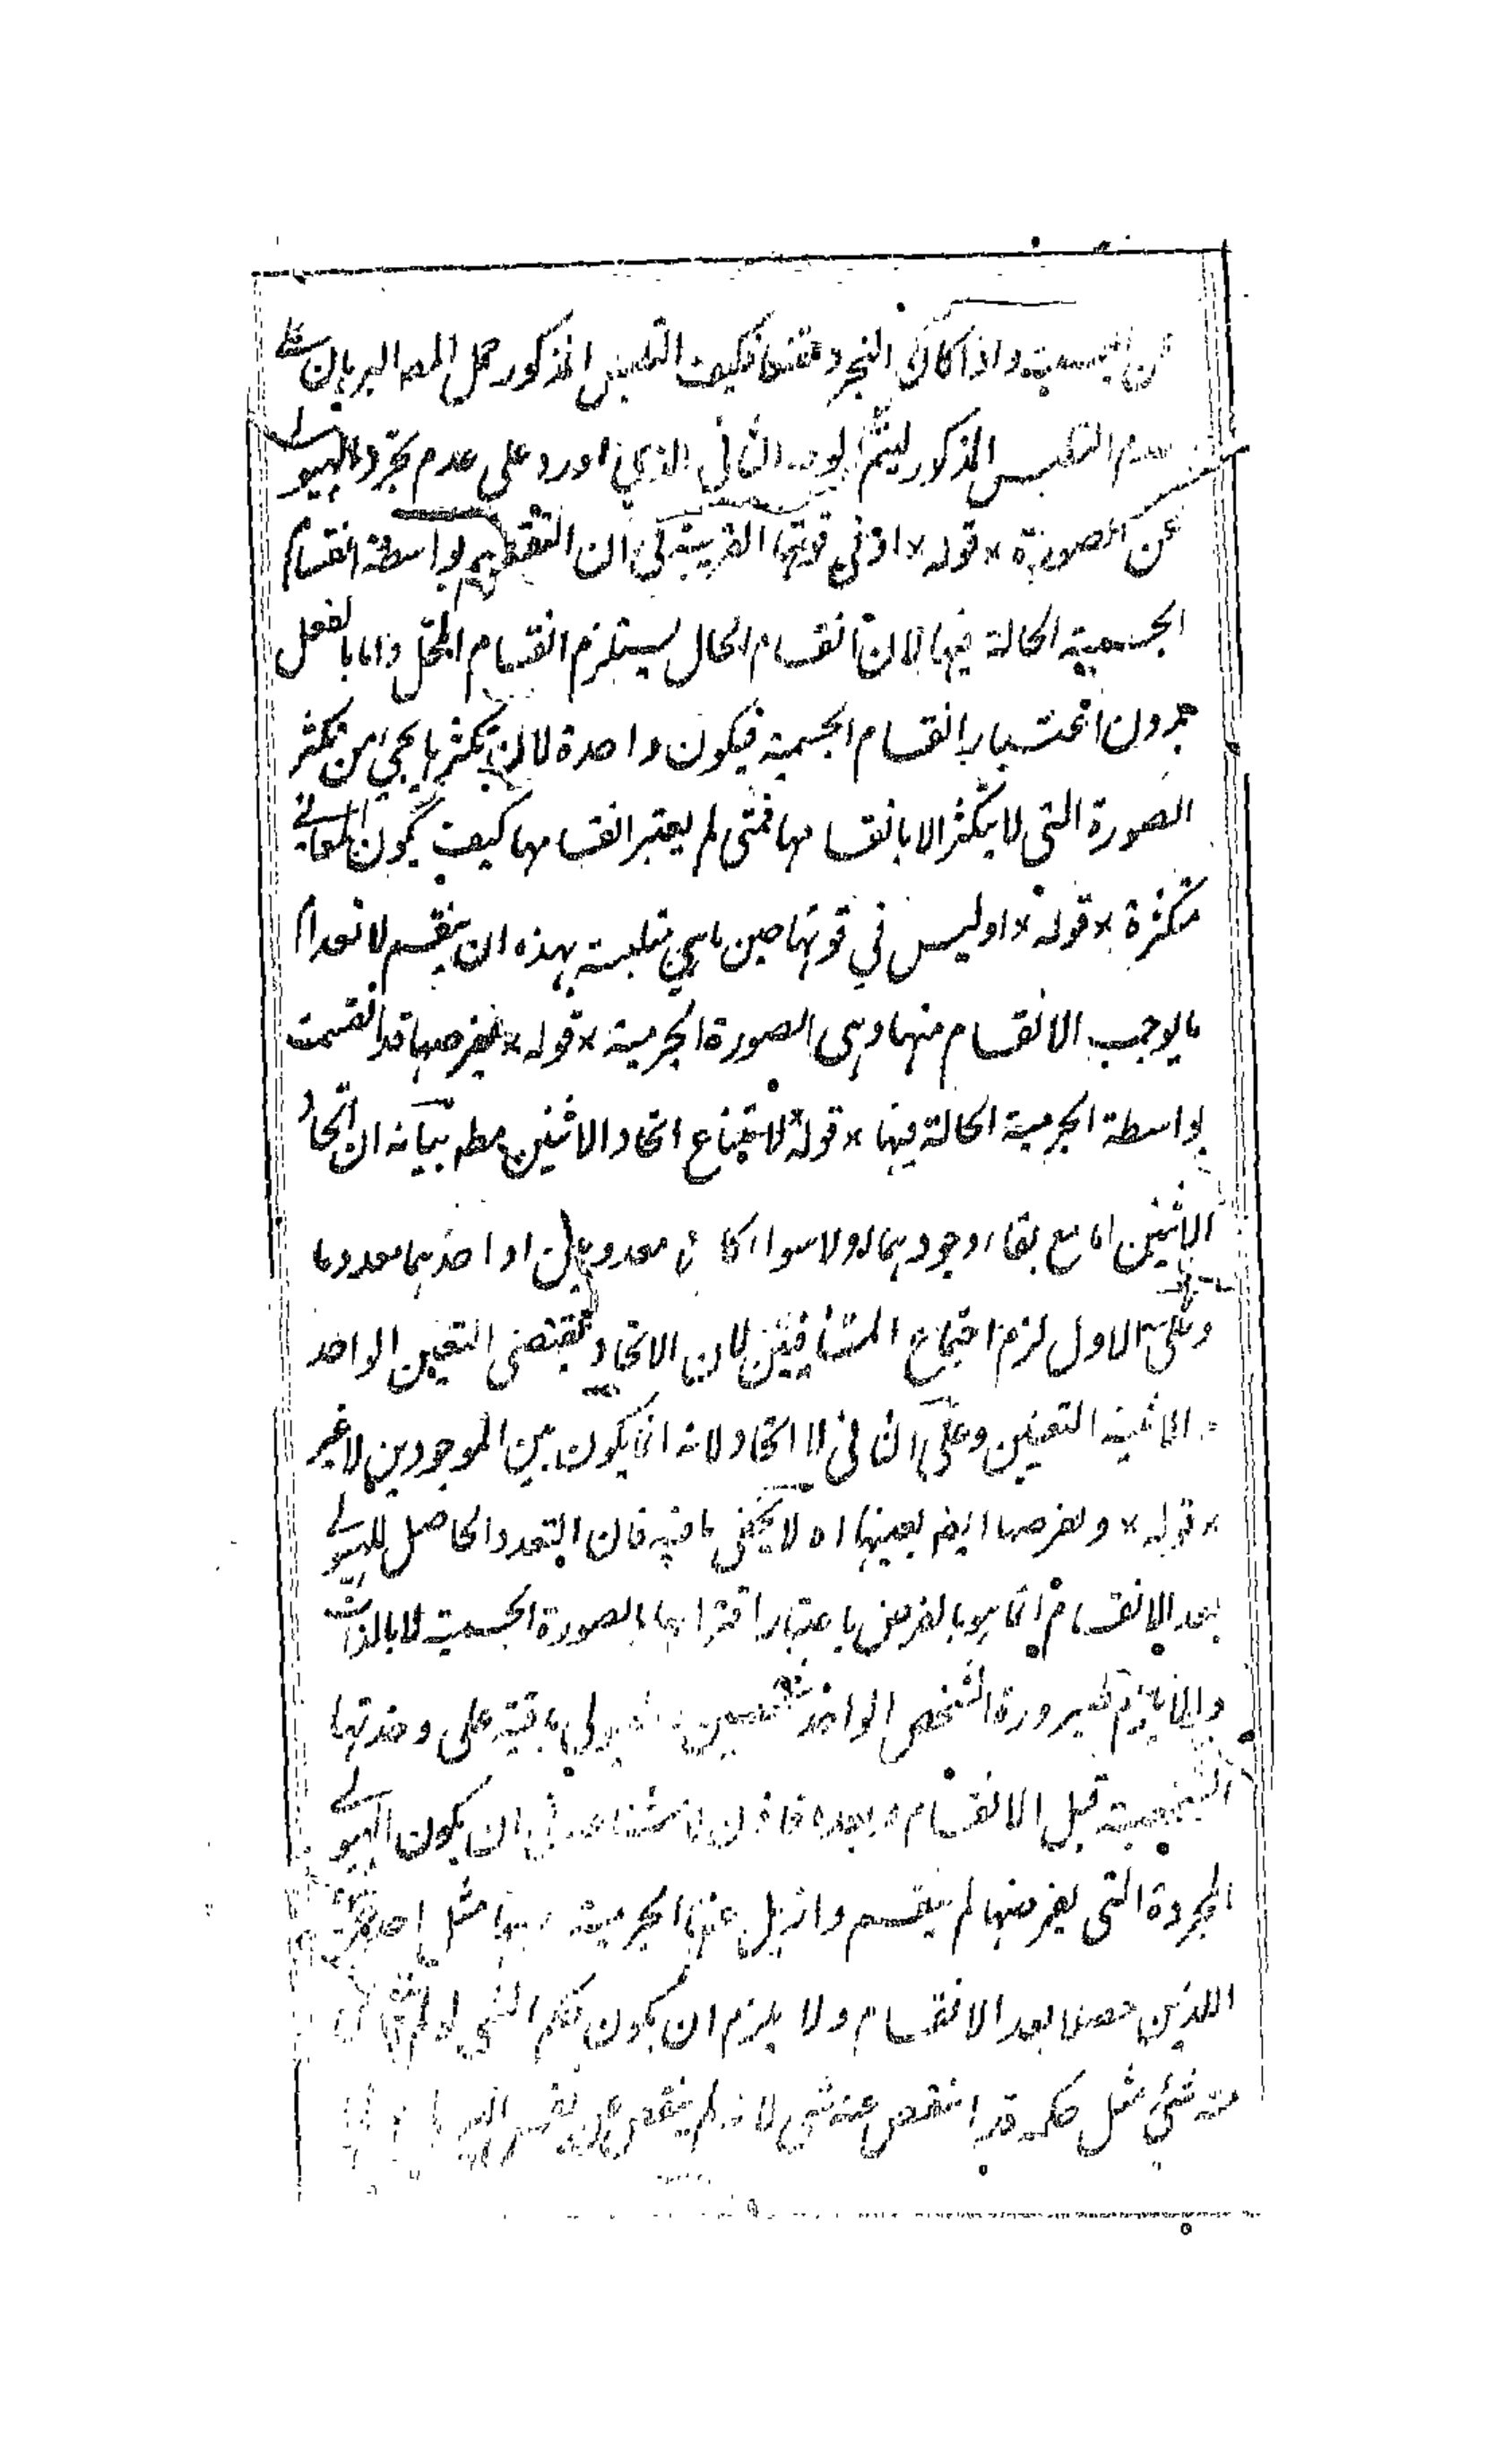 عن الجسمية واذا كان التجرد ممتنعا فكيف التلبس المذكور حمل المصـ البرهان على
عدم التلبس المذكور ليتم الوجه الثاني الذي اورد على عدم تجرد الهيولى
عن الصورة × قوله × او في قوتها القريبة اي ان تنقسم بواسطة انقسام
الجسمية الحالة فيها لان انقسام الحال يستلزم انقسام المحل واما بالفعل
بدون اعتبار انقسام الجسمية فيكون واحدة لان تكثرها يجئ من تكثر
الصورة التي لا يتكثر الا بانقسامها فمتى لم يعتبر انقسامها كيف يكون الهيولى
متكثرة × قوله × او ليس في قوتها حين ما هي متلبسة بهذه ان ينقسم لانعدام
ما يوجب الانقسام منها وهي الصورة الجرمية × قوله × نفرضها قد انقسمت
بواسطة الجرمية الحالة فيها × قوله × لامتناع اتحاد الاثنين مطـ بيانه ان اتحاد
الاثنين اما مع بقاء وجودهما او لا سواء كانا معدومين او احدهما معدوما
وعلى الاول لزم اجتماع المتنافيين لان الاتحاد يقتضي التعين الواحد
و الاثنينية التعينين وعلى الثاني لا اتحاد لانه انما يكون بين الموجودين لا غير
× قوله × ونفرضها ايضـ بعينها اه لا يخفى ما فيه فان التعدد الحاصل للهيولى
بعد الانقسام انما هو بالعرض باعتبار اقترانها بالصورة الجسمية لا بالذات
والا يلزم صيرورة الشخص الواحد شخصين فالهيولى باقية على وحدتها
الشخصية قبل الانقسام وبعده فاذن لا في ان يكون الهيولى
المجردة التي نفرضها لم ينقسم وازيل عنها الجرمية مثل
اللذين حصلا بعد الانقسام ولا يلزم ان يكون حكم الشي لو لم
منه شئ مثل حكمه قد انتقص عنه شئ لانه لم ينتقص